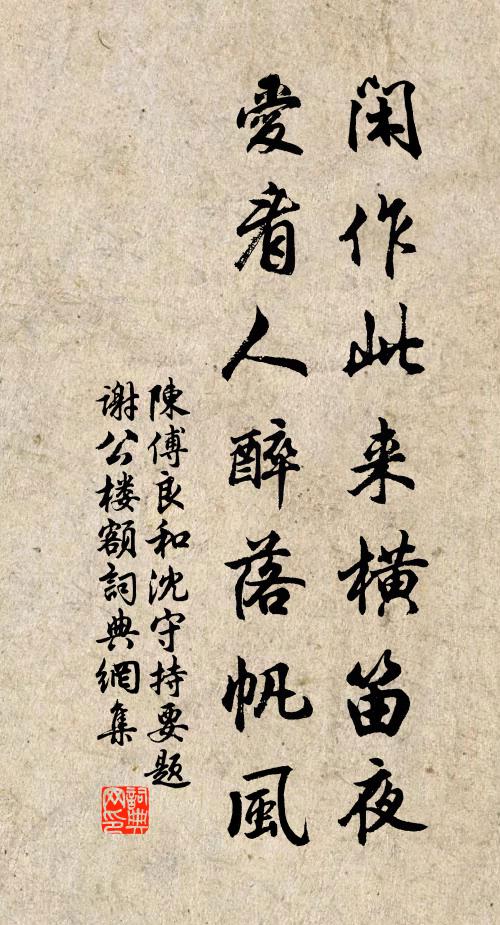 閑作此来橫笛夜
愛看人醉落帆風
陳傅良和沈守持要題
謝公楼額詞典網集
詞典
网印